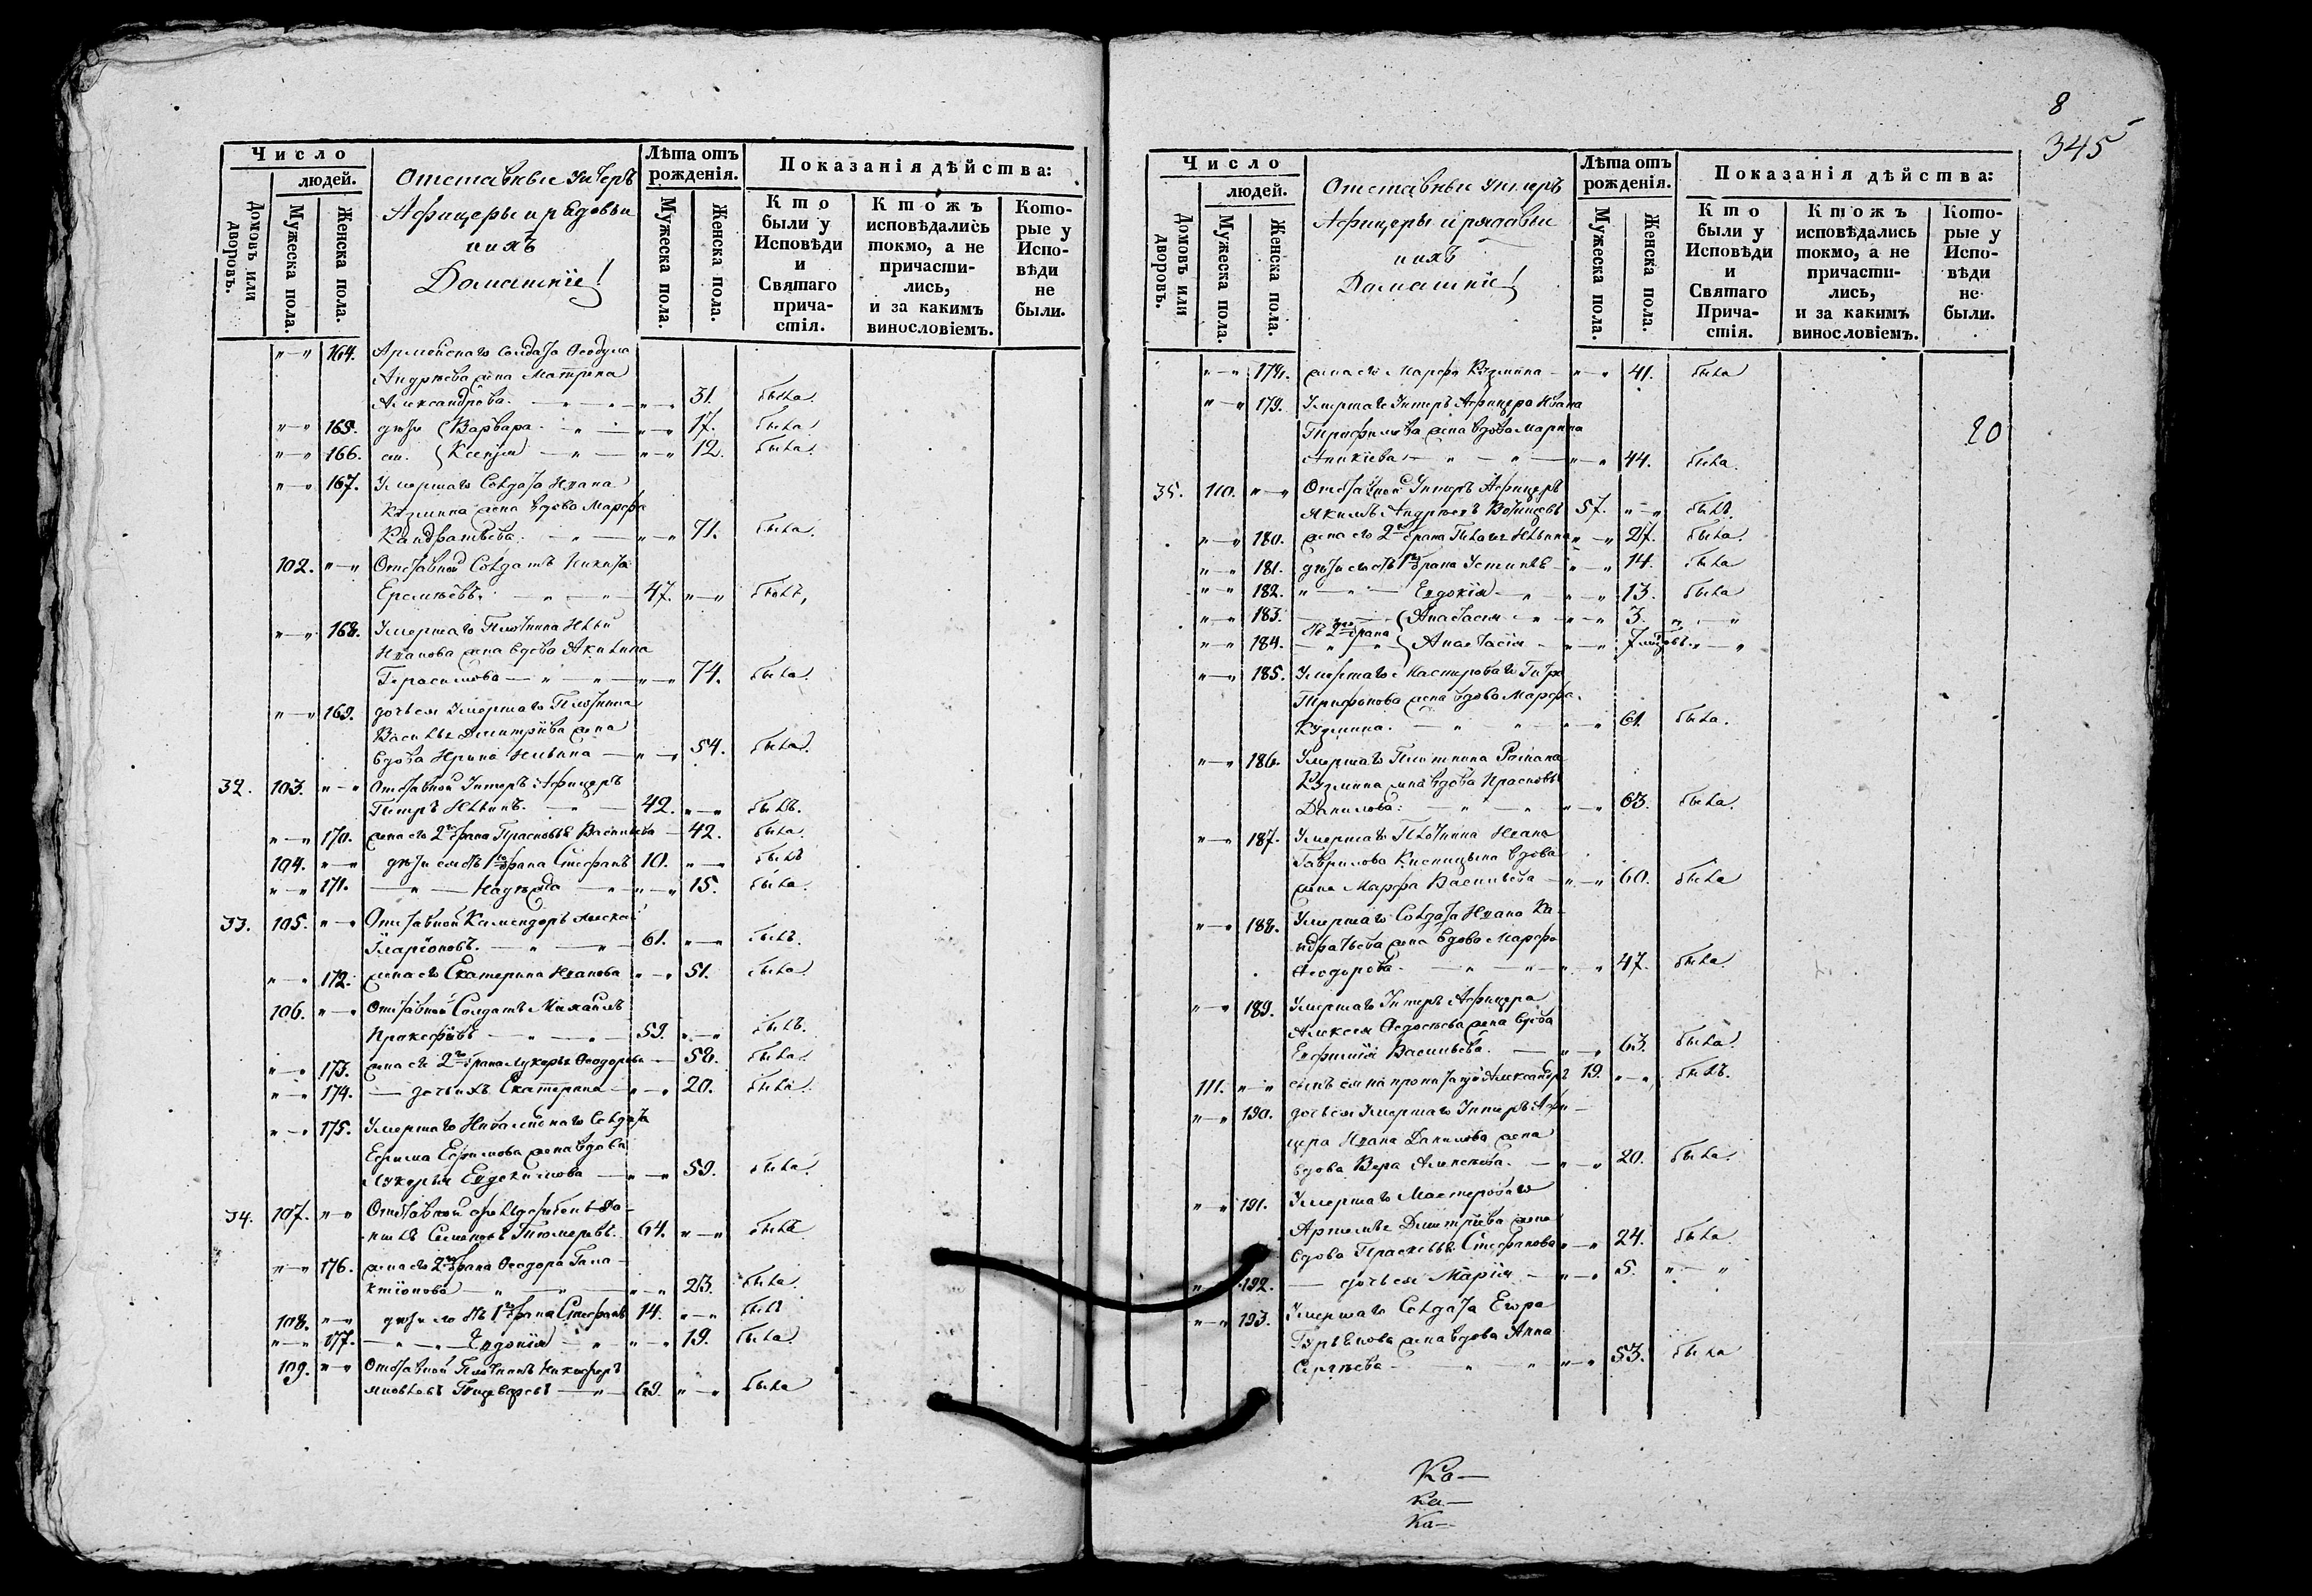 Число
людей.
Домовъ или дворовъ.
Мужеска пола.
Женска пола.
Отставные Унтеръ
Афицеры и рядовыи
и ихъ
Домашніе!
Лѣта отъ рожденія.
Мужеска пола.
Женска пола.
Показанія дѣйства:
Кто были у Исповѣди и Святаго причастія.
Ктожъ исповѣдались токмо, а не причастились, и за какимъ винословіемъ.
Которые у Исповѣди не были.
"—" 164. Армейскаго солдата Ѳеодула
Андрѣева жена Матрена
Александрова. — " — "—" 31. была.
"—" 165. дѣти Варвара — " — "—" 17. была
"—" 166. Ксенія — " — "—" 12. была.
"—" 167. Умершаго Солдата Ивана
Казмина жена вдова Марфа
Кандратьева. — " — "—" 71. была.
102. "—" Отставной Солдатъ Никита
Еремѣевъ. — " — 47. "—" былъ,
"—" 168. Умершаго Плотника Ильи
Иванова жена вдова Акилина
Герасимова — " — "—" 74. была.
"—" 169. дочь ея Умершаго Плотника
Василья Дмитріева жена
вдова Ирина Ильина — "—" 54. была.
32. 103. "—" Отставной Унтеръ Афицеръ
Петръ Ильинъ. — " — 42. "—" былъ.
"—" 170. жена его 2го брака Прасковья Васильева — 42. была.
104. "—" дѣти ихъ 1го брака Стефанъ 10. "—" былъ
"—" 171. — " — Надежда — " — "—" 15. была.
33. 105. "—" Отставной Камендоръ Алексѣй
Иларіоновъ. — " — 61. "—" былъ.
"—" 172. жена его Екатерина Иванова "—" 51. была.
106. "—" Отставной Солдатъ Михайлъ
Прокофіевъ — " — 59. "—" былъ.
"—" 173. жена его 2го брака Лукерья Ѳеодорова — 58. была.
"—" 174. — дочь ихъ Екатерина — "—" 20. была.
"—" 175. Умершаго Инвалиднаго Солдата
Ефима Ефимова жена вдова
Лукерья Евдокимова — "—" 59. была.
34. 107. "—" Отставной
Семеновъ 64. "—" былъ
"—" 176. жена его 2го брака Ѳеодора Гала-
ктіонова — " — "—" 23. была.
108. "—" дѣти его отъ 1го брака Стефанъ 14. "—" былъ
"—" 177. — " — Евдокія — " — "—" 19. была.
109. "—" Отставной Плотникъ Никифоръ
69. "—" была
8
345
20
Число
людей.
Домовъ или дворовъ.
Мужеска пола.
Женска пола.
Отставные Унтеръ
Афицеры и рядавыи
и ихъ
Домашніе!
Лѣта отъ рожденія.
Мужеска пола.
Женска пола.
Показанія дѣйства:
Кто были у Исповѣди и Святаго Причастія.
Ктожъ исповѣдались токмо, а не причастились, и за какимъ винословіемъ.
Которые у Исповѣди не были.
"—" 178. жена его Марфа Кузмина — "—" 41. была
"—" 179. Умершаго Унтеръ Афицера Ивана
жена вдова Марина
Аникіева — " — "—" 44. была.
35. 110. "—" Отставной Унтеръ Афицеръ
Якимъ Андрѣевъ 57. "—" былъ.
"—" 180. жена его 2го брака Пелагія Ильина "—" 27. была.
"—" 181. дѣти ихъ 1го брака Устинья — "—" 14. была
"—" 182. " — " Евдокія — " "—" 13. была
"—" 183. Анастасія — " "—" 3. " — "
2го брака
"—" 184. — " — Анастасія — "—" 7 мѣсцовъ. " — "
"—" 185. Умершаго Мастероваго Петра
Трифонова жена вдова Марфа
Кузмина. — " — "—" 61. была.
"—" 186. Умершаго Плотника Романа
Кузмина жена вдова Прасковья
Данилова: — " — "—" 63. была.
"—" 187. Умершаго Плотника Ивана
Гаврилова вдова
жена Марфа Васильева — "—" 60. была
"—" 188. Умершаго Солдата Ивана Ка-
ндратьева жена вдова Марфа
Ѳеодорова. — " — "—" 47. была.
"—" 189. Умершаго Унтеръ Афицера
Алексея Ѳедосѣева жена вдова
Евфимія Васильева. — "—" 63. была.
111. "—" сынъ ея на пропитаніи Александръ 19. "—" былъ.
"—" 190. дочь ея Умершаго Унтеръ Афи-
цера Ивана Данилова жена
вдова Вера Алексѣева. — "—" 20. была.
"—" 191. Умершаго Мастероваго
Артемья Дмитріева жена
вдова Прасковья Стефанова "—" 24. была
"—" 192. — дочь ея Марія — "—" 5. " — "
"—" 193. Умершаго Солдата Егора
Гурьянова жена вдова Анна
Сергѣева — " — "—" 53. была
Ка—
Ка—
Ка—